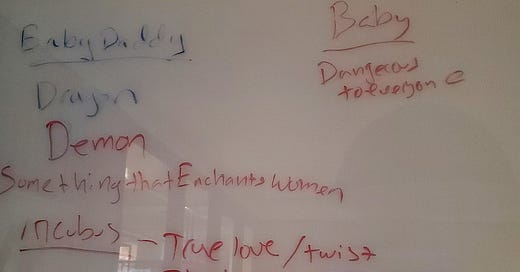 Baby Daddy
Dragon
Demon
Something that Enchants Women
Incubus - True love / twist
Baby
Dangerous
to everyone